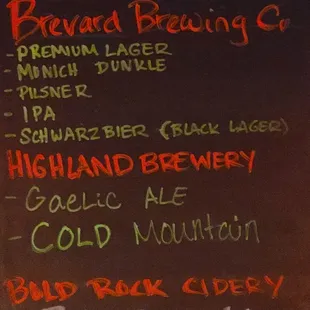 Brevard Brewing Co
- PREMIUM LAGER
- MUNICH DUNKLE
- PILSNER
- IPA
- SCHWARZBIER (BLACK LAGER)
HIGHLAND BREWERY
- GaeLic ALE
- COLD Mountain
BOLD ROCK CIDERY